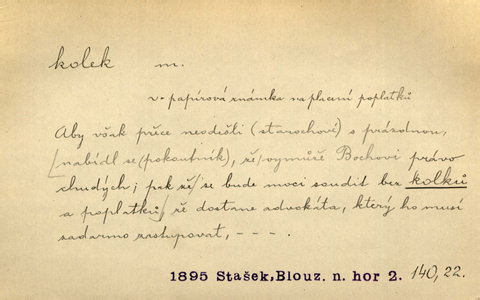 kolek m.
v. papírová známka na placení poplatků
Aby však přece neodešli (starochoví) s prázdnou,
[nabídl se (pokoutník), že/vymůže Bochovi právo
chudých; pak že/se bude moci soudit bez kolků
a poplatků/ že dostane advokáta, který ho musí
zadarmo zastupovat, – – – .
1895 Stašek, Blouz. n. hor 2. 140, 22.